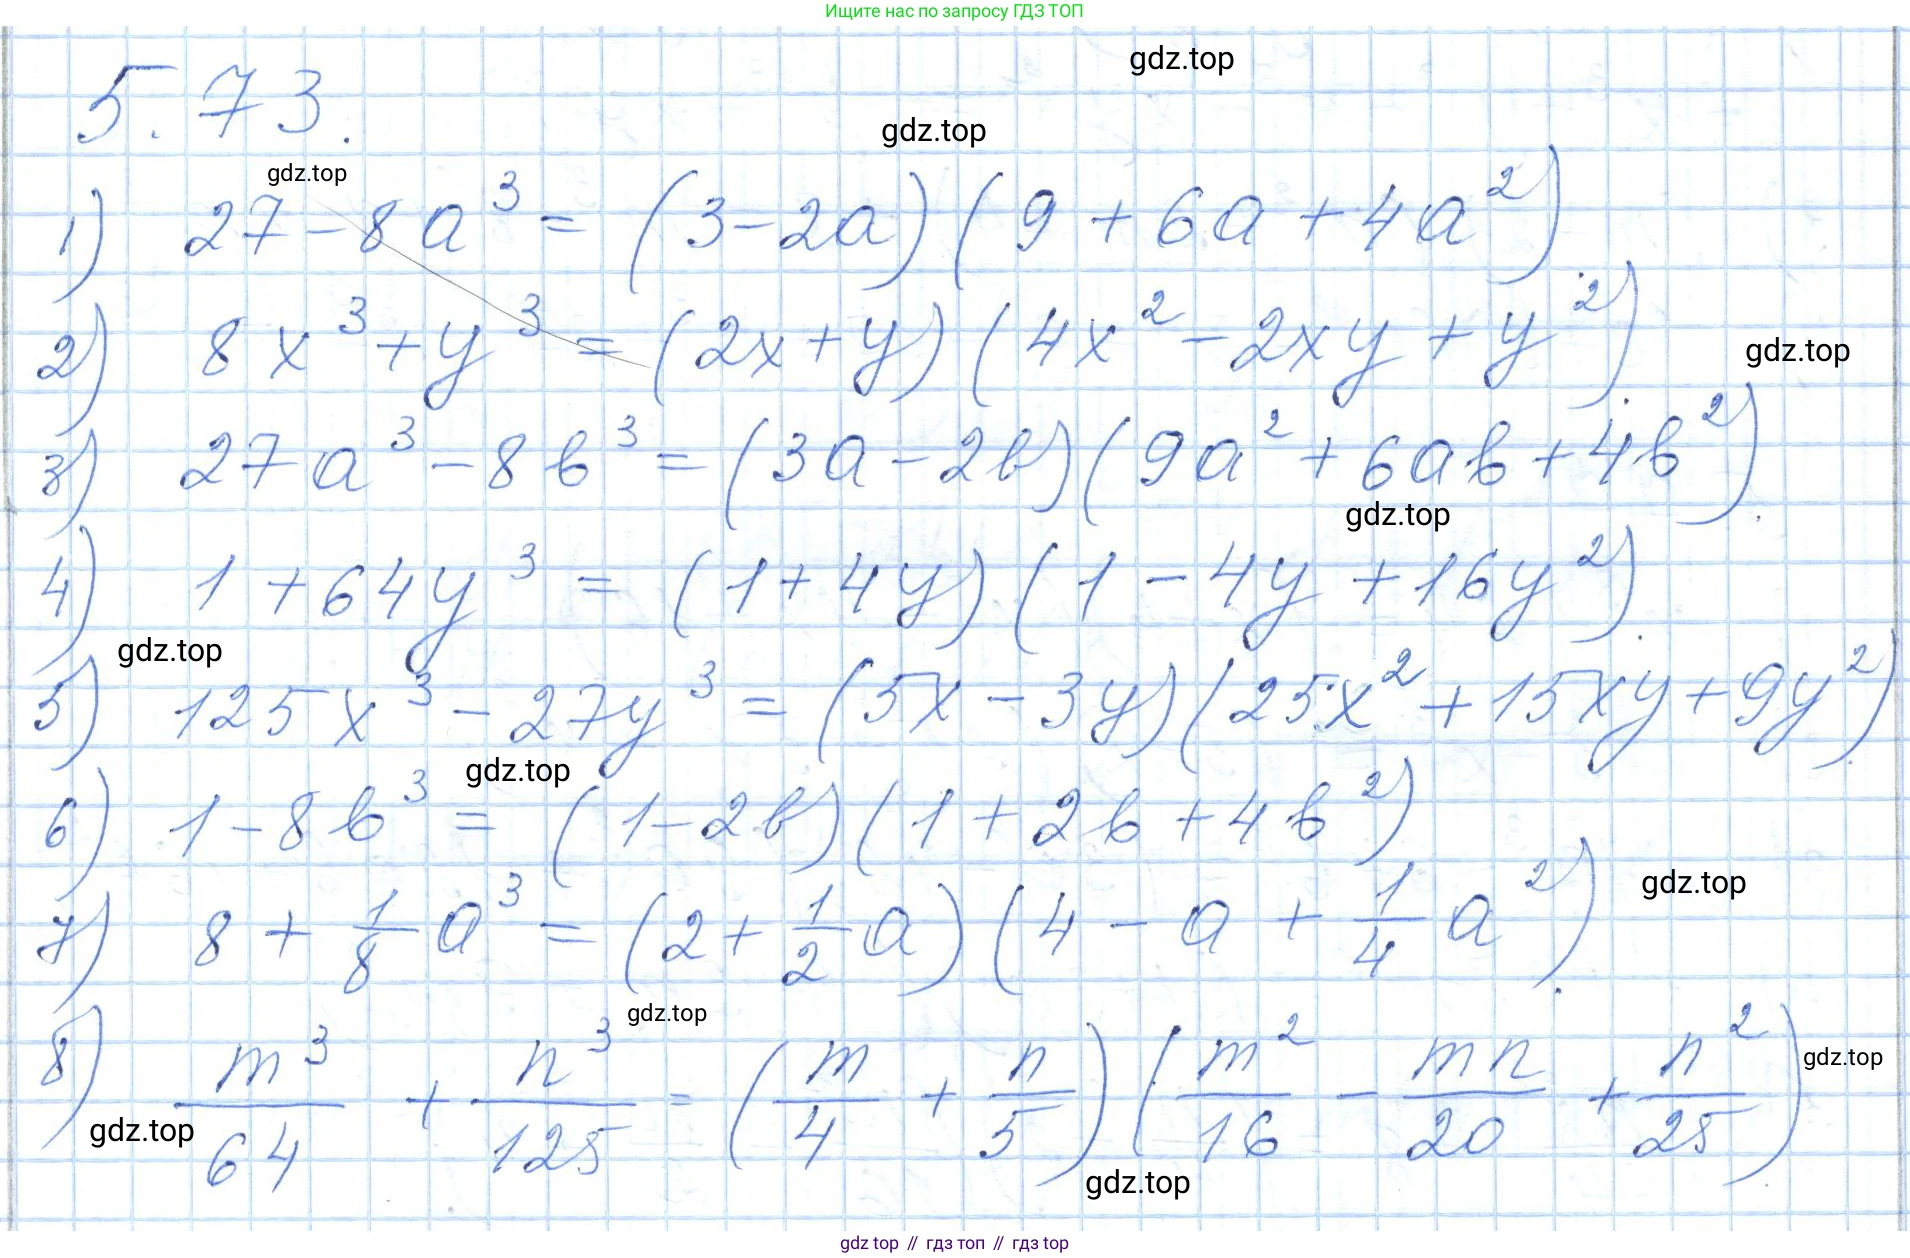 Ищите нас по запросу ГДЗ ТОП
gdz.top
5.73.
gdz.top
gdz.top
1) 27 - 8a³ = (3 - 2a)(9 + 6a + 4a²).
2) 8x³ + y³ = (2x + y)(4x² - 2xy + y²).
gdz.top
3) 27a³ - 8b³ = (3a - 2b)(9a² + 6ab + 4b²).
gdz.top
4) 1 + 64y³ = (1 + 4y)(1 - 4y + 16y²).
gdz.top
5) 125x³ - 27y³ = (5x - 3y)(25x² + 15xy + 9y²).
gdz.top
6) 1 - 8b³ = (1 - 2b)(1 + 2b + 4b²)
gdz.top
7) 8 + 1/8 a³ = (2 + 1/2 a)(4 - a + 1/4 a²).
gdz.top
8) m³/64 + n³/125 = (m/4 + n/5)(m²/16 - mn/20 + n²/25).
gdz.top
gdz.top
gdz.top
gdz top // гдз топ // гдз top